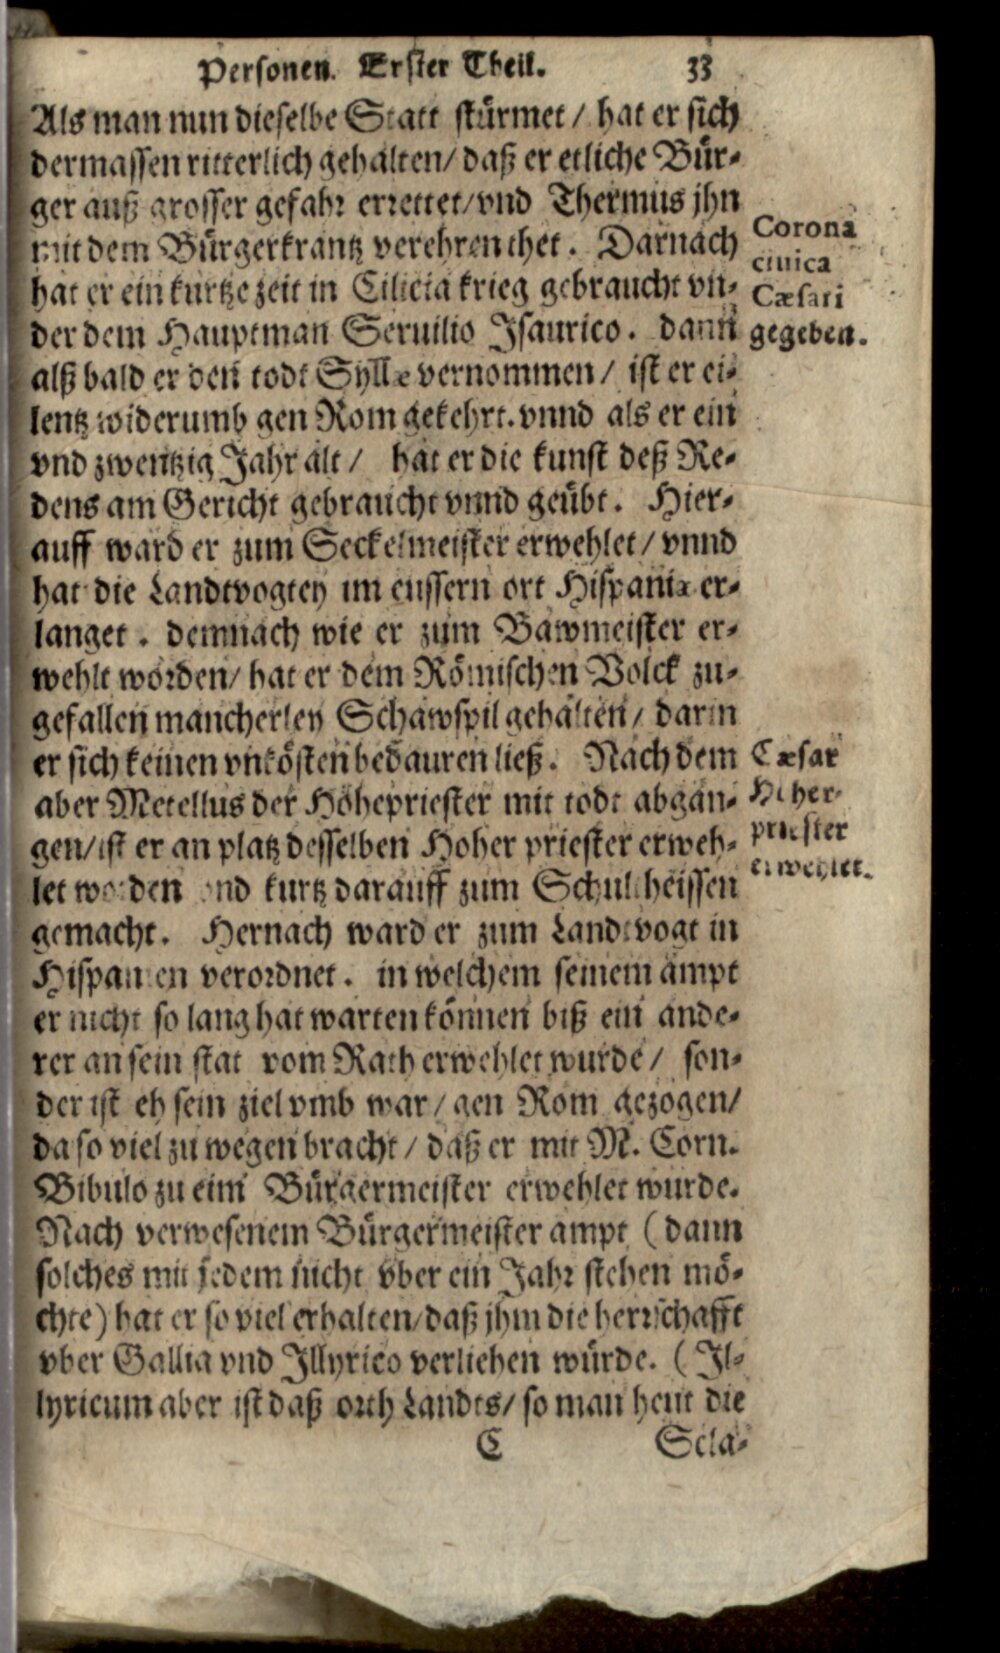 Personen. Erster Theil. 33
Als man nun dieselbe Statt stürmet / hat er sich
dermassen ritterlich gehalten/ daß er etliche Bür-
ger auß grosser gefahr errettet/ vnd Thermus jhn
mit dem Bürgerkrantz verehren thet. Darnach
hat er ein kurtze zeit in Cilicia krieg gebraucht vn-
der dem Hauptman Seruilio Isaurico. dann
alß bald er den todt Syllæ vernommen / ist er ei-
lentz widerumb gen Rom gekehrt. vnnd als er ein
vnd zwentzig Jahr alt / hat er die kunst deß Re-
dens am Gericht gebraucht vnnd geübt. Hier-
auff ward er zum Seckelmeister erwehlet / vnnd
hat die Landtvogtey im eussern ort Hispaniæ er-
langet. demnach wie er zum Bawmeister er-
wehlt worden/ hat er dem Römischen Volck zu-
gefallen mancherley Schawspil gehalten / darin
er sich keinen vnkösten bedauren ließ. Nach dem
aber Metellus der Hohepriester mit todt abgan-
gen/ ist er an platz desselben Hoher priester erweh-
let worden vnd kurtz darauff zum Schultheissen
gemacht. Hernach ward er zum Landtvogt in
Hispanien verordnet. in welchem seinem ampt
er nicht so lang hat warten können biß ein ande-
rer an sein stat vom Rath erwehlet wurde / son-
der ist eh sein ziel vmb war / gen Rom gezogen/
da so viel zu wegen bracht / daß er mit M. Corn.
Bibulo zu eim Bürgermeister erwehlet wurde.
Nach verwesenem Bürgermeister ampt (dann
solches mit jedem nicht vber ein Jahr stehen mö-
chte) hat er so viel erhalten/ daß jhm die herrschafft
vber Gallia vnd Illyrico verliehen würde. (Il-
lyricum aber ist daß orth Landts/ so man heut die
C Scla-
Corona
ciuica
Cæsari
gegeben.
Cæsar
Hoher-
priester
erwehlet.